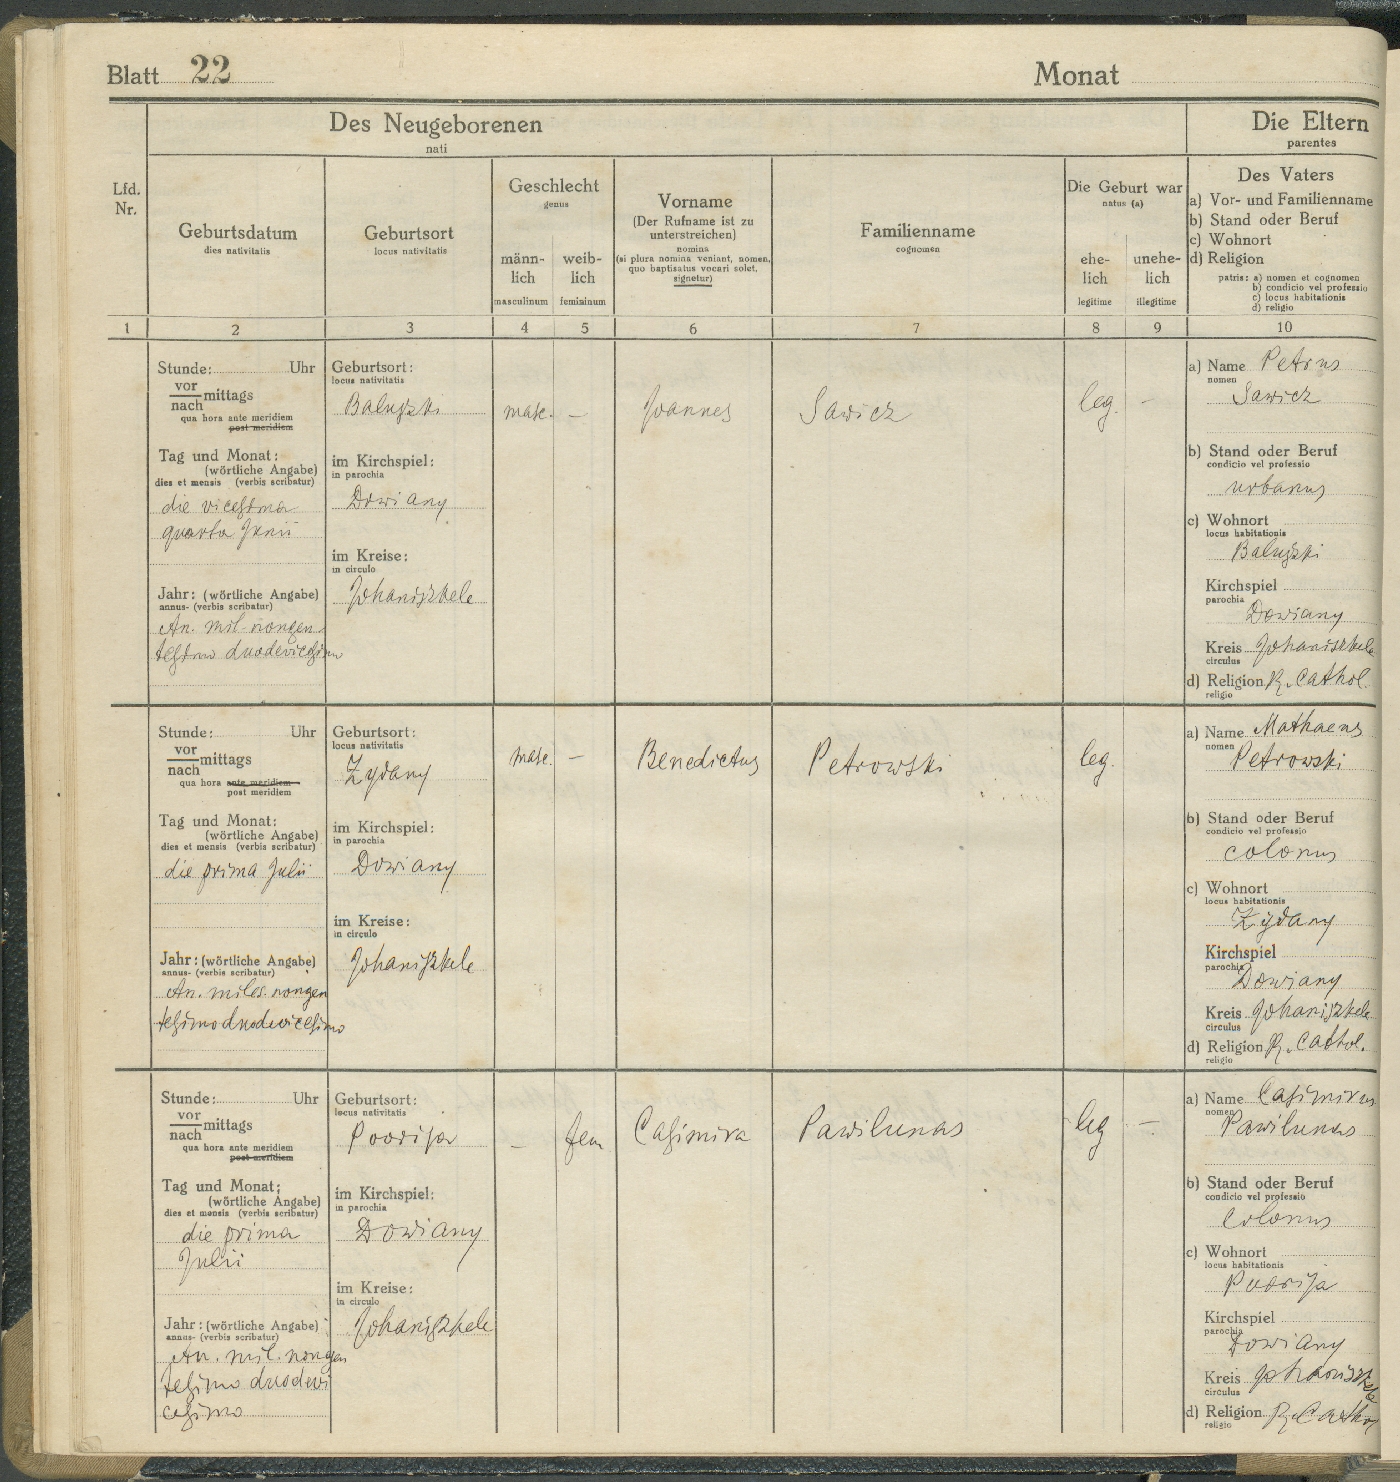 Blatt 22
Monat
Des Neugeborenen
nati
Die Eltern
parentes
Lfd.
Nr.
Geburtsdatum
dies nativitatis
Geburtsort
locus nativitatis
Geschlecht
genus
männ-
lich
masculinum
weib-
lich
femininum
Vorname
(Der Rufname ist zu
unterstreichen)
nomina
(si plura nomina veniant, nomen,
quo baptisatus vocari solet,
signetur)
Familienname
cognomen
Die Geburt war
natus (a)
ehe-
lich
legitime
unehe-
lich
illegitime
Des Vaters
a) Vor- und Familienname
b) Stand oder Beruf
c) Wohnort
d) Religion
patris: a) nomen et cognomen
b) condicio vel professio
c) locus habitationis
d) religio
1 2 3 4 5 6 7 8 9 10
Stunde: Uhr
vor
nach mittags
qua hora ante meridiem
post meridiem
Tag und Monat:
(wörtliche Angabe)
dies et mensis (verbis scribatur)
die vicesima
quarta Junii
Jahr: (wörtliche Angabe)
annus- (verbis scribatur)
An. mil. nongen
tesimo duodevicesimo
Geburtsort:
locus nativitatis
Baluszki
im Kirchspiel:
in parochia
Dowiany
im Kreise:
in circulo
Johaniszkele
masc. —
Joannes
Sawicz
leg. —
a) Name Petrus
nomen
Sawicz
b) Stand oder Beruf
condicio vel professio
urbanus
c) Wohnort
locus habitationis
Baluszki
Kirchspiel
parochia
Dowiany
Kreis Johaniszkele
circulus
d) Religion R. Cathol.
religio
Stunde: Uhr
vor
nach mittags
qua hora ante meridiem
post meridiem
Tag und Monat:
(wörtliche Angabe)
dies et mensis (verbis scribatur)
die prima Julii
Jahr: (wörtliche Angabe)
annus- (verbis scribatur)
An. miles. nongen
tesimo duodevicesimo
Geburtsort:
locus nativitatis
Zydany
im Kirchspiel:
in parochia
Dowiany
im Kreise:
in circulo
Johaniszkele
masc. —
Benedictus
Petrowski
leg.
a) Name Mathaeus
nomen
Petrowski
b) Stand oder Beruf
condicio vel professio
colonus
c) Wohnort
locus habitationis
Zydany
Kirchspiel
parochia
Dowiany
Kreis Johaniszkele
circulus
d) Religion R. Cathol.
religio
Stunde: Uhr
vor
nach mittags
qua hora ante meridiem
post meridiem
Tag und Monat:
(wörtliche Angabe)
dies et mensis (verbis scribatur)
die prima
Julii
Jahr: (wörtliche Angabe)
annus- (verbis scribatur)
An. mil. nongen
tesimo duodevi
cesimo
Geburtsort:
locus nativitatis
im Kirchspiel:
in parochia
Dowiany
im Kreise:
in circulo
Johaniszkele
— fem
Casimira
Pawilunas
leg —
a) Name Casimirus
nomen
Pawilunas
b) Stand oder Beruf
condicio vel professio
colonus
c) Wohnort
locus habitationis
Kirchspiel
parochia
Dowiany
Kreis Johaniszkele
circulus
d) Religion R. Cathol
religio